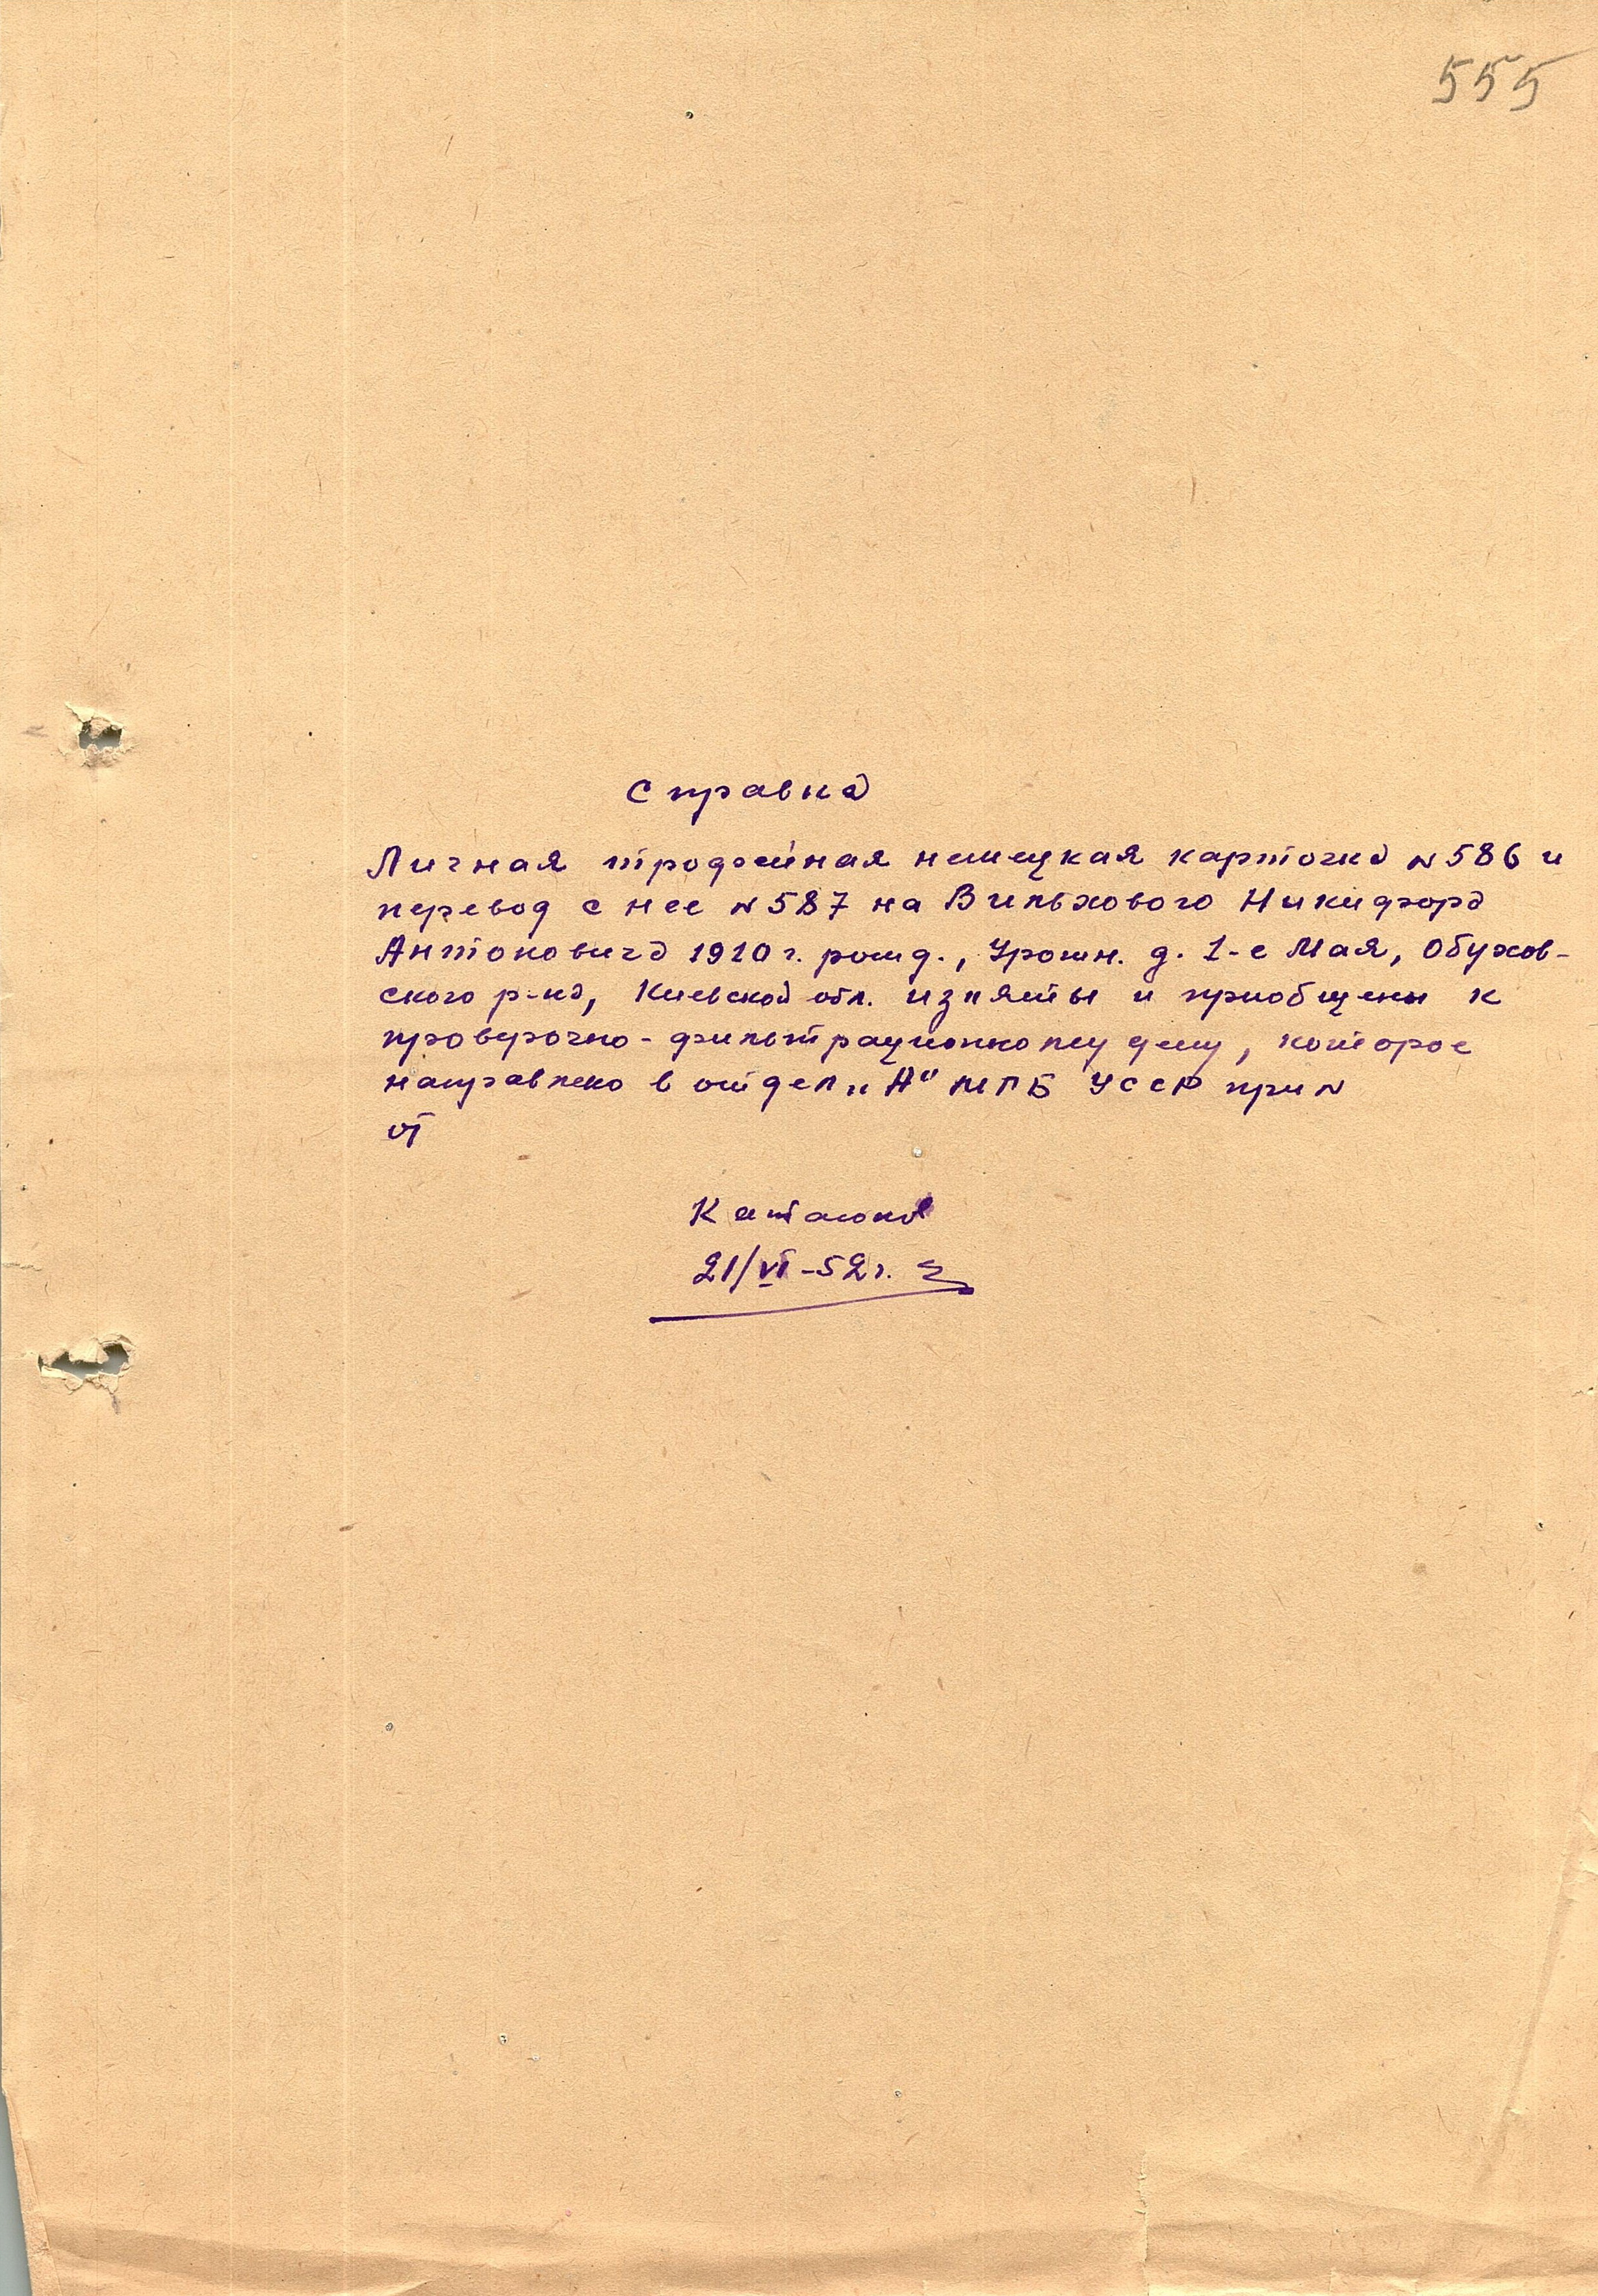 555
Справка
Личная трофейная немецкая карточка N 586 и
перевод с нее N 587 на Вильхового Никифора
Антоновича 1910 г. рожд., Урожн. д. 1-е Мая, Обухов-
ского р-на, Киевской обл. изъяты и приобщены к
проверочно-фильтрационному делу, которое
направлено в отдел „А" МГБ УССР при N
от
21/VI-52 г.